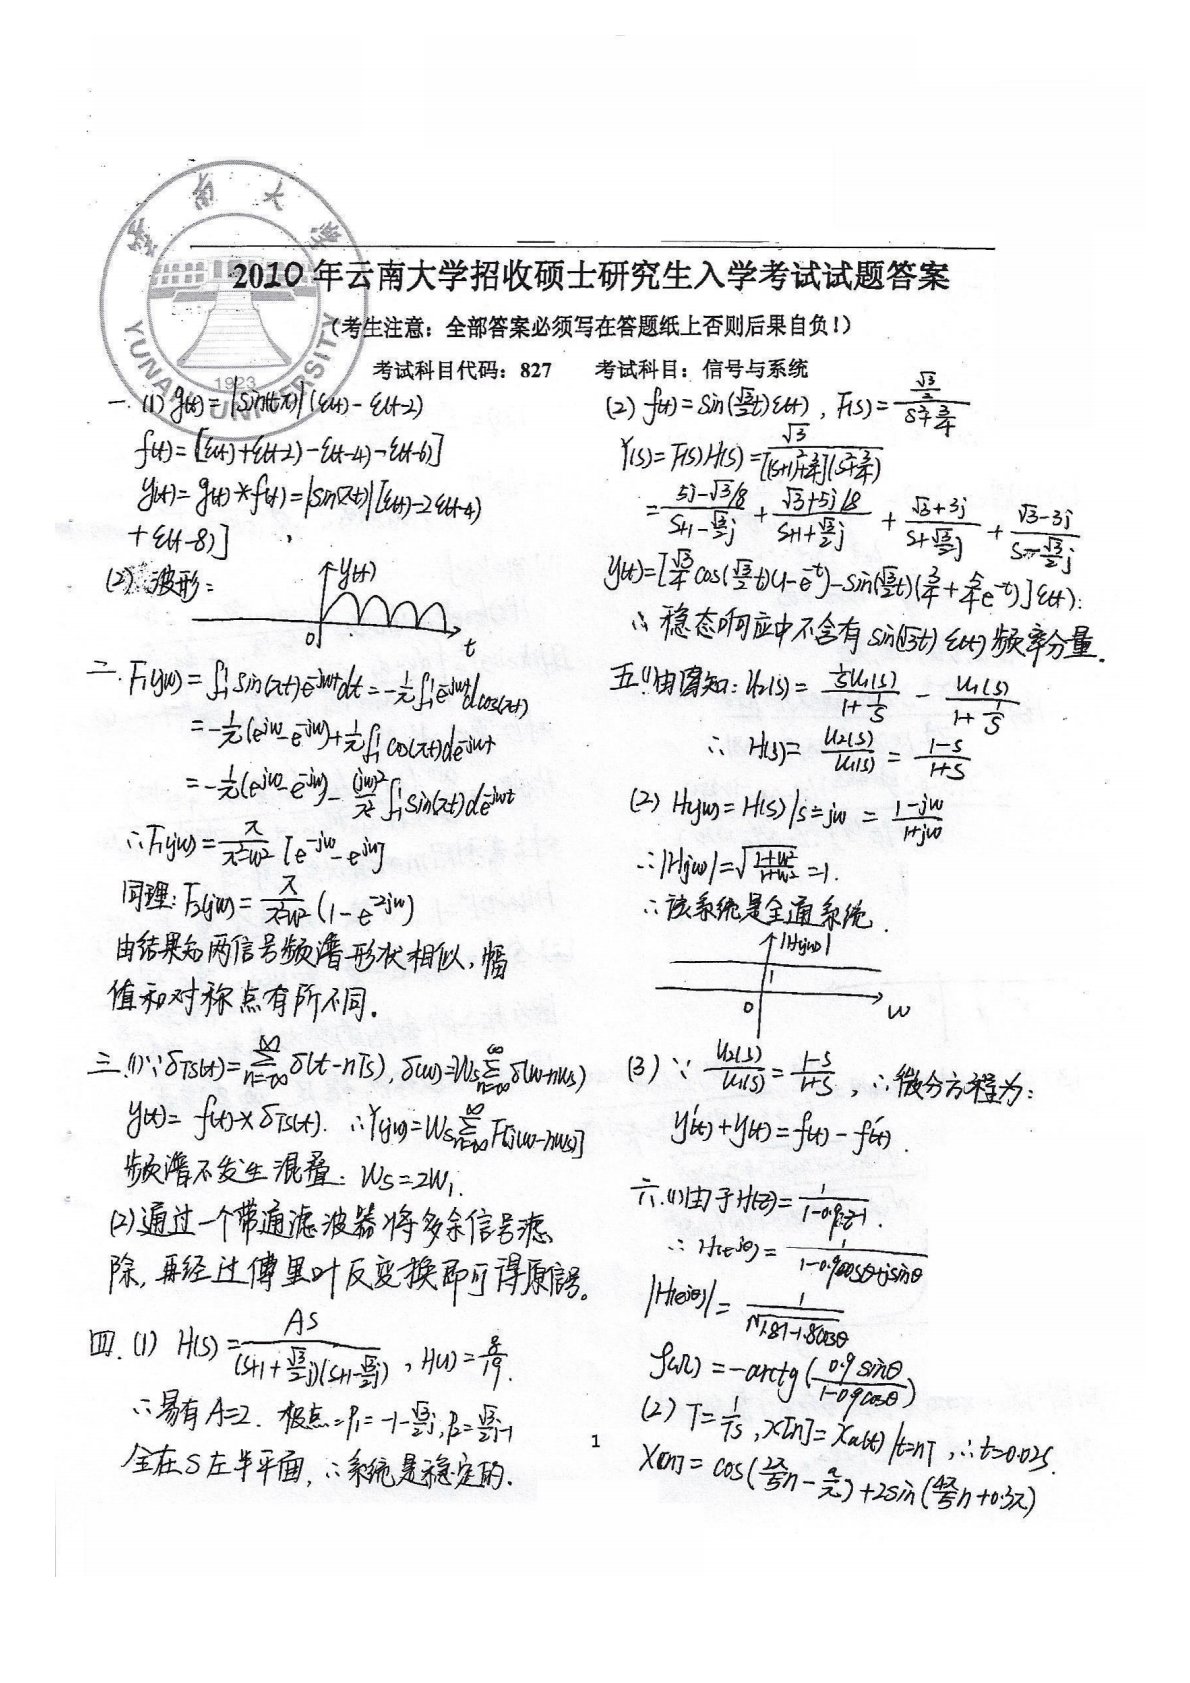 云南大学
YUNNAN UNIVERSITY
1923
2010年云南大学招收硕士研究生入学考试试题答案
(考生注意：全部答案必须写在答题纸上否则后果自负!)
考试科目代码：827 考试科目：信号与系统
一.(1) g(t)=|sin(tπ)|(ε(t)-ε(t-2))
f(t)=[ε(t)+ε(t-2)-ε(t-4)-ε(t-6)]
y(t)=g(t)*f(t)=|sin(πt)|[ε(t)-2ε(t-4)
+ε(t-8)]
(2) 波形：
y(t)
0
t
二. F₁(jw)=∫₋₁¹sin(πt)e^{-jwt}dt=-1/π∫₋₁¹e^{-jwt}dcos(πt)
=-1/π(e^{jw}-e^{-jw})+1/π∫₋₁¹cos(πt)de^{-jwt}
=-1/π(e^{jw}-e^{-jw})-(jw)²/π²∫₋₁¹sin(πt)de^{-jwt}
∴F₁(jw)=π/(π²-w²)[e^{-jw}-e^{jw}]
同理：F₂(jw)=π/(π²-w²)(1-e^{-2jw})
由结果知两信号频谱形状相似，幅
值和对称点有所不同.
三.(1)∵δTs(t)=∑_{n=-∞}^{∞}δ(t-nTs), δ(w)=Ws∑_{n=-∞}^{∞}δ(w-nws)
y(t)=f(t)×δTs(t). ∴Y(jw)=Ws∑_{n=-∞}^{∞}F[j(w-nws)]
频谱不发生混叠：Ws=2W₁.
(2)通过一个带通滤波器将多余信号滤
除，再经过傅里叶反变换即可得原信号。
四.(1) H(s)=AS/((s+1+√3/2j)(s+1-√3/2j)), H(1)=8/19.
∴易有A=2. 极点=P₁=-1-√3/2j, P₂=√3/2j-1
全在S左半平面，∴系统是稳定的.
(2) f(t)=sin(√3/2t)ε(t), F(s)=(√3/2)/(s²+3/4)
Y(s)=F(s)H(s)=√3/([(s+1)²+3/4](s²+3/4))
=(5j-√3/8)/(s+1-√3/2j)+(√3+5j/8)/(s+1+√3/2j)+(√3+3j)/(s+√3/2j)+(√3-3j)/(s-√3/2j)
y(t)=[√3/4cos(√3/2t)(1-e^{-t})-sin(√3/2t)(3/4+5/4e^{-t})]ε(t):
∴稳态响应中不含有sin(√3t)ε(t)频率分量.
五.(1)由图知：U₂(s)=(1/s U₁(s))/(1+1/s)-U₁(s)/(1+1/s)
∴ H(s)=U₂(s)/U₁(s)=(1-s)/(1+s)
(2) H(jw)=H(s)|s=jw=(1-jw)/(1+jw)
∴|H(jw)|=√((1+w²)/(1+w²))=1.
∴该系统是全通系统.
|H(jw)|
1
0
w
(3) ∵U₂(s)/U₁(s)=(1-s)/(1+s), ∴微分方程为：
y'(t)+y(t)=f(t)-f'(t).
六.(1)由于H(z)=1/(1-0.9z⁻¹).
∴H(e^{jθ})=1/(1-0.9cosθ+jsinθ)
|H(e^{jθ})|=1/√(1.81-1.8cosθ)
φ(Ω)=-arctg(0.9sinθ/(1-0.9cosθ))
(2) T=1/Ts, x[n]=xa(t)|t=nT, ∴t=0.02s.
x[n]=cos(2π/5n-)+2sin(4π/5n+0.3π)
1